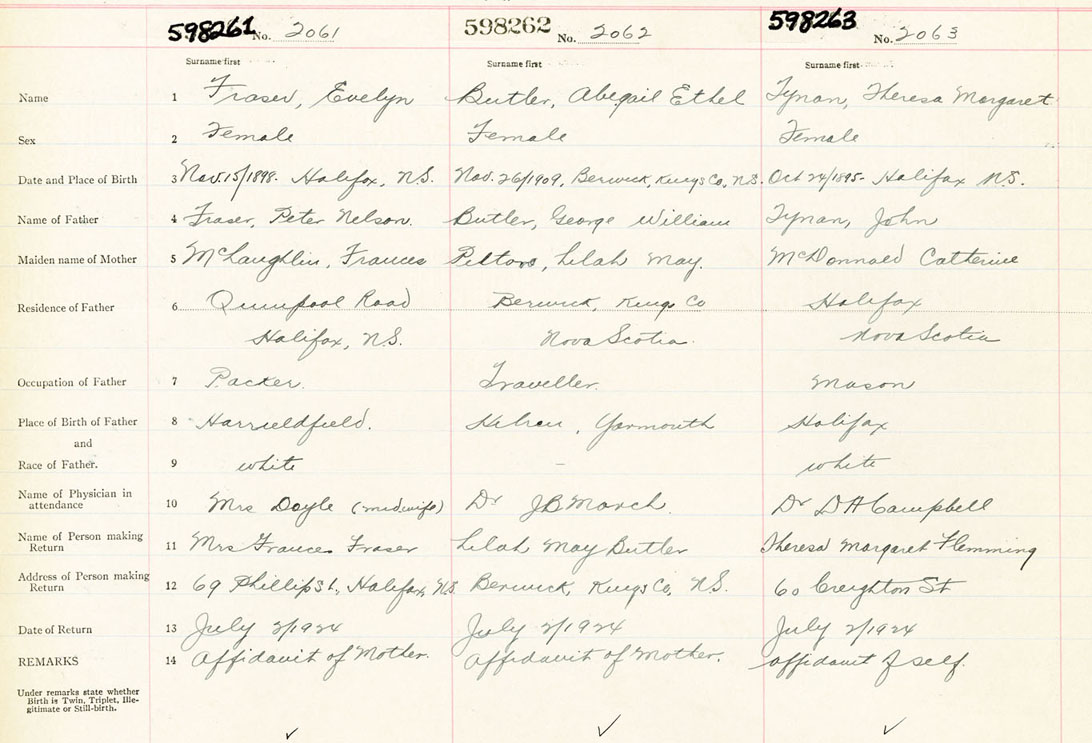 598261 No. 2061 598262 No. 2062 598263 No. 2063
Surname first Surname first Surname first
Name 1 Fraser, Evelyn Butler, Abegail Ethel Tynan, Theresa Margaret
Sex 2 Female Female Female
Date and Place of Birth 3 Nov. 15/1898. Halifax, N.S. Nov. 26/1909, Berwick, Kings Co, N.S. Oct 24/1895- Halifax N.S.
Name of Father 4 Fraser, Peter Nelson. Butler, George William Tynan, John
Maiden name of Mother 5 McLaughlin, Frances Peltons, Lelah May. McDonnald Catherine
Residence of Father 6 Quinpool Road Berwick, Kings Co Halifax
Halifax, N.S. Nova Scotia. Nova Scotia
Occupation of Father 7 Packer. Traveller. Mason
Place of Birth of Father 8 Harrieldfield. , Yarmouth Halifax
and
Race of Father. 9 white – white
Name of Physician in
attendance 10 Mrs Doyle (midwife) Dr JB March. Dr D A Campbell
Name of Person making
Return 11 Mrs Frances Fraser Lelah May Butler Theresa Margaret Flemming
Address of Person making
Return 12 69 Phillip St., Halifax, N.S. Berwick, Kings Co, N.S. 60 Creighton St
Date of Return 13 July 2/1924 July 2/1924 July 2/1924
REMARKS 14 Affidavit of Mother. Affidavit of Mother. affidavit of self.
Under remarks state whether
Birth is Twin, Triplet, Ille-
gitimate or Still-birth.